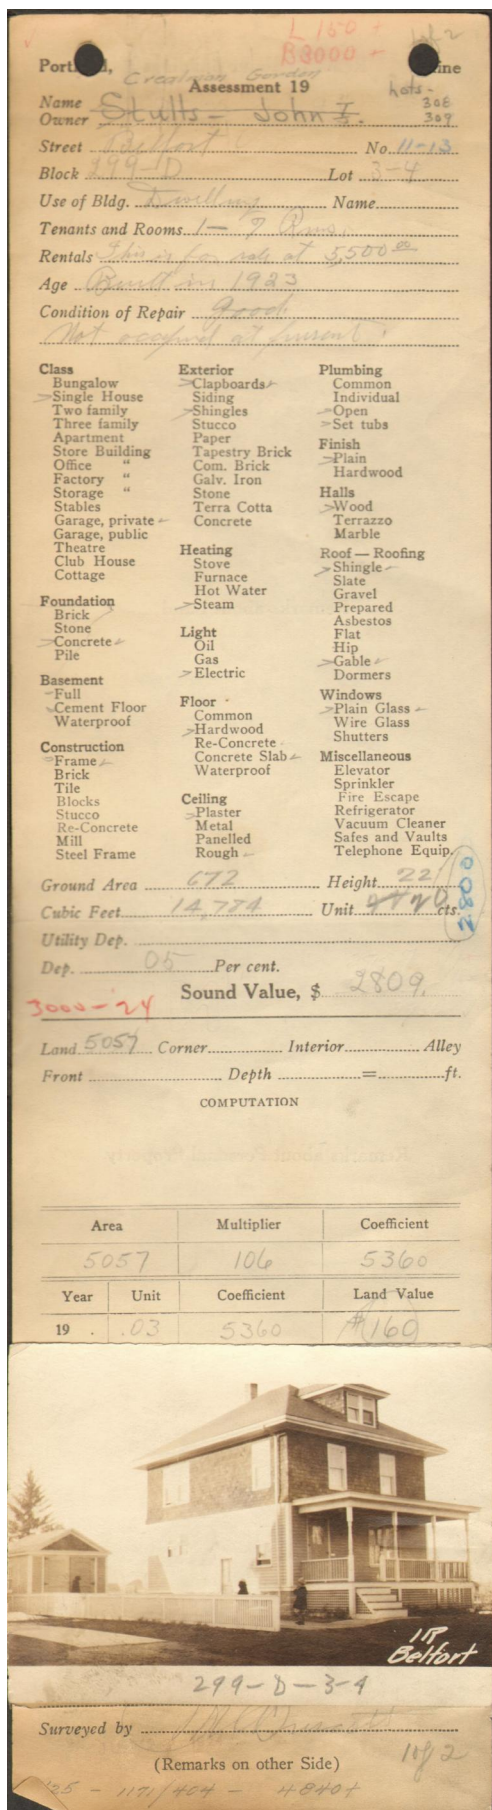 L 150 +
B 3000 -
1 of 2
Portland, Maine
Gordon
Assessment 19
Lots-
Name Stults - John 308
Owner 309
Street Belfort No. 11-13
Block 299-D Lot 3-4
Use of Bldg. Dwelling Name
Tenants and Rooms 1- 7 Rms.
Rentals This is for sale at 5,500 00
Age Built in 1923
Condition of Repair good
Not occupied at present.
Class
Bungalow
Single House
Two family
Three family
Apartment
Store Building
Office "
Factory "
Storage "
Stables
Garage, private
Garage, public
Theatre
Club House
Cottage
Foundation
Brick
Stone
Concrete
Pile
Basement
Full
Cement Floor
Waterproof
Construction
Frame
Brick
Tile
Blocks
Stucco
Re-Concrete
Mill
Steel Frame
Exterior
Clapboards
Siding
Shingles
Stucco
Paper
Tapestry Brick
Com. Brick
Galv. Iron
Stone
Terra Cotta
Concrete
Heating
Stove
Furnace
Hot Water
Steam
Light
Oil
Gas
Electric
Floor
Common
Hardwood
Re-Concrete
Concrete Slab
Waterproof
Ceiling
Plaster
Metal
Panelled
Rough
Plumbing
Common
Individual
Open
Set tubs
Finish
Plain
Hardwood
Halls
Wood
Terrazzo
Marble
Roof — Roofing
Shingle
Slate
Gravel
Prepared
Asbestos
Flat
Hip
Gable
Dormers
Windows
Plain Glass
Wire Glass
Shutters
Miscellaneous
Elevator
Sprinkler
Fire Escape
Refrigerator
Vacuum Cleaner
Safes and Vaults
Telephone Equip.
Ground Area 672 Height 22
Cubic Feet 14,784 Unit cts.
2800
Utility Dep.
Dep. 05 Per cent.
Sound Value, $ 2809.
3000-24
Land 5057 Corner Interior Alley
Front Depth = ft.
COMPUTATION
Area Multiplier Coefficient
5057 106 5360
Year Unit Coefficient Land Value
19 . .03 5360 $160
1R
Belfort
299-D-3-4
Surveyed by
(Remarks on other Side)
1 of 2
25 - 1171/404 - 4840+